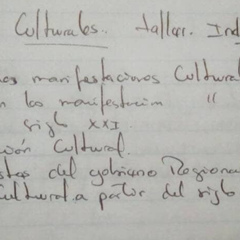 Culturales. tallar. Ind
nos manifestaciones Cultural
en las manifestacion "
siglo XXI.
ción Cultural.
stas del gobierno Regiona
Cultural a partir del siglo